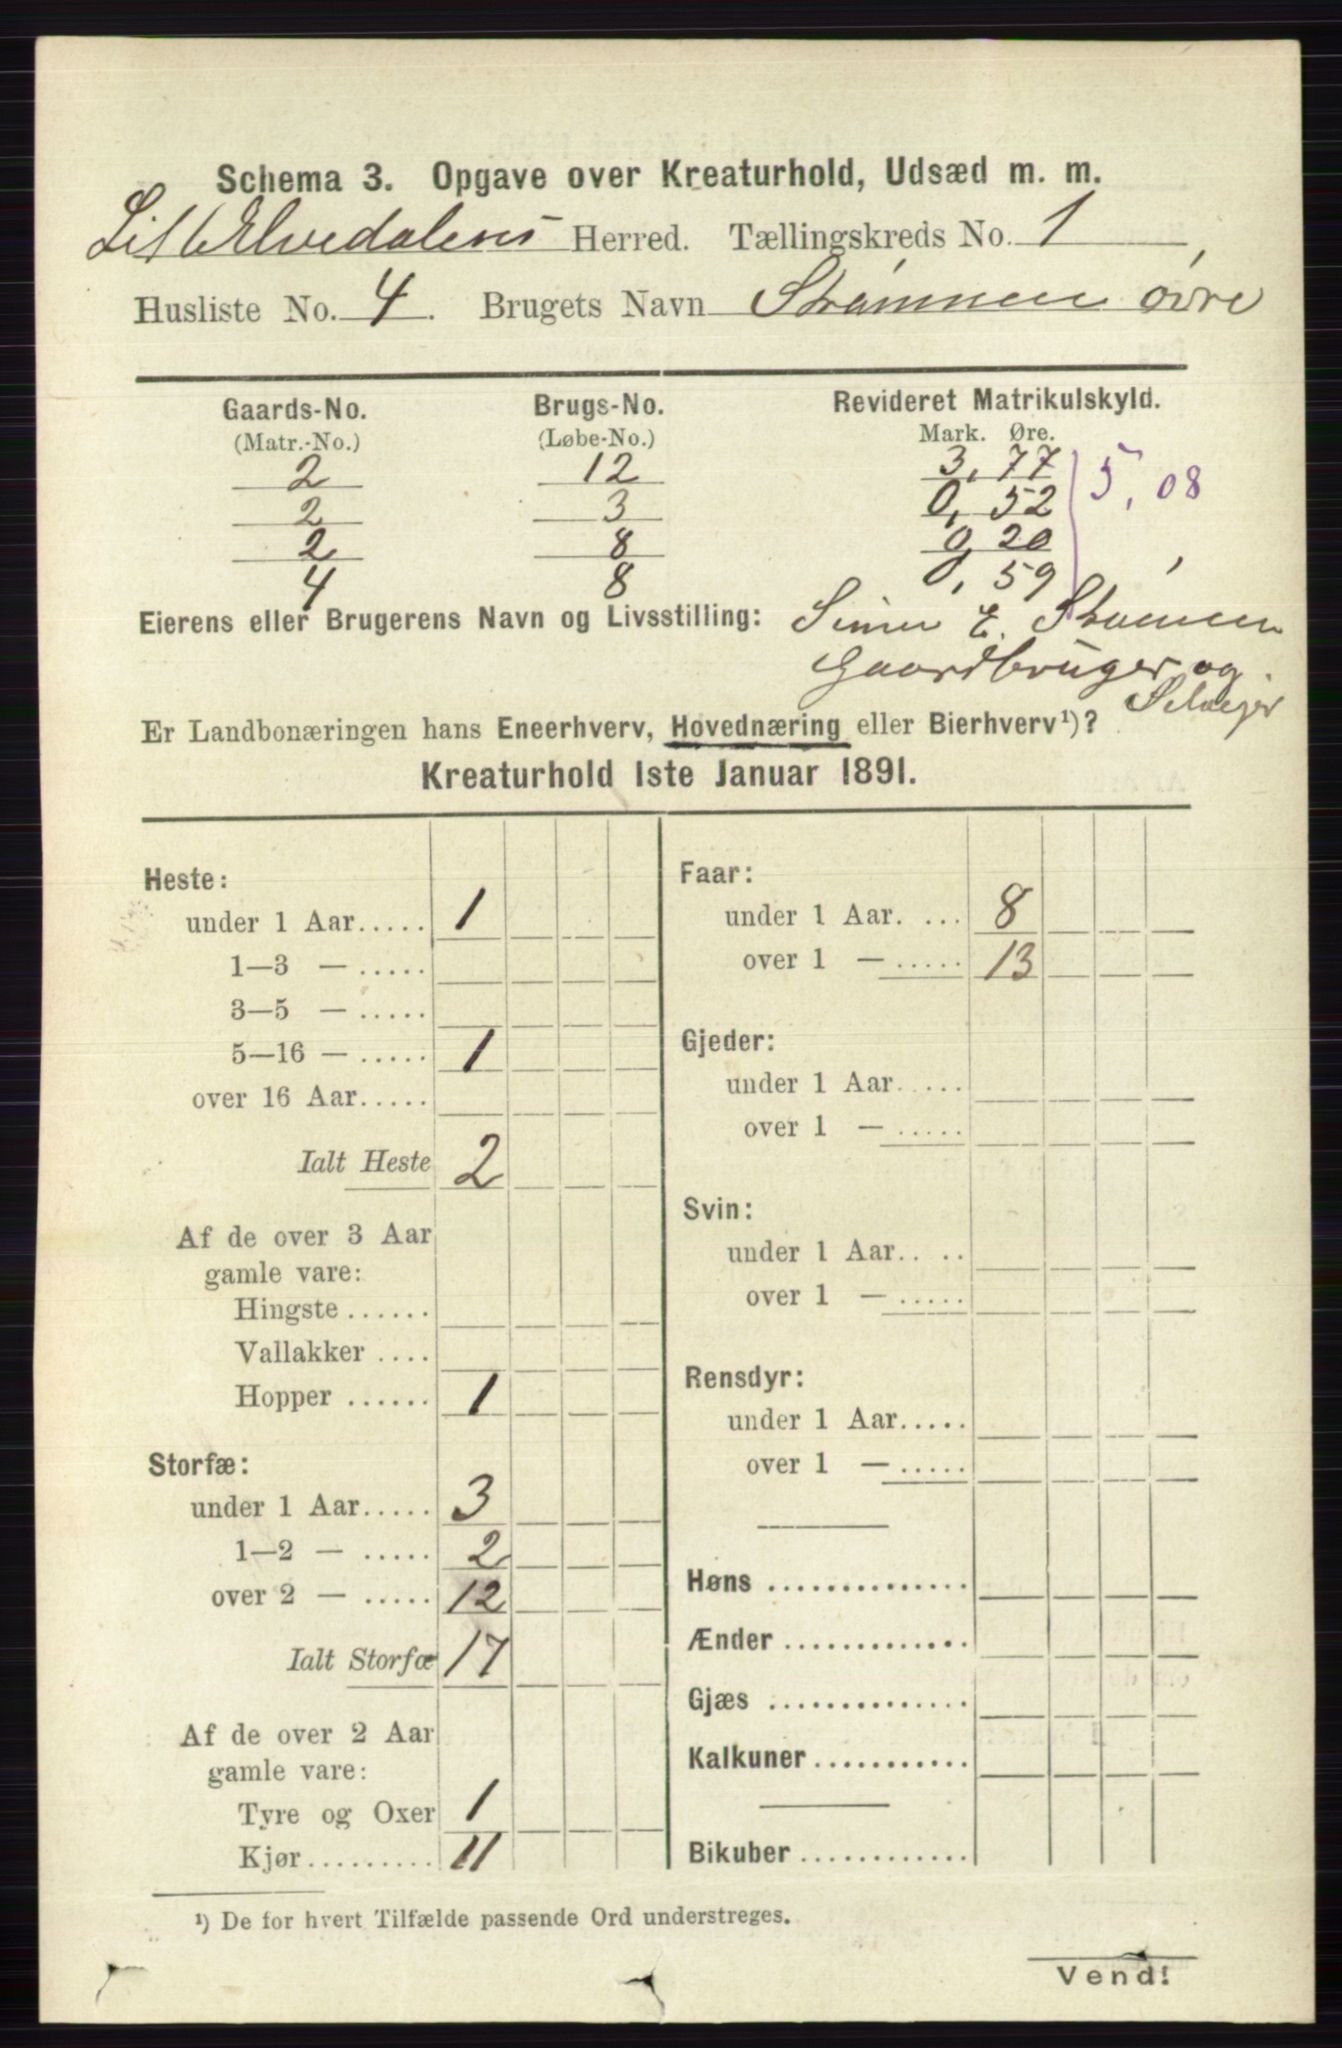 Schema 3. Opgave over Kreaturhold, Udsæd m. m.
Lil Elvedalens Herred. Tællingskreds No. 1,
Husliste No. 4. Brugets Navn Strømmen øvre
Gaards-No. Brugs-No. Revideret Matrikulskyld.
(Matr.-No.) (Løbe-No.) Mark. Øre.
2 12 3,77
2 3 0,52 5,08
2 8 0,20
4 8 0,59
Eierens eller Brugerens Navn og Livsstilling: Simen E. Strømmen
Gaardbruger og
Selveier
Er Landbonæringen hans Eneerhverv, Hovednæring eller Bierhverv¹)?
Kreaturhold 1ste Januar 1891.
Heste:
under 1 Aar..... 1
1—3 — .....
3—5 — .....
5—16 — ..... 1
over 16 Aar.....
Ialt Heste 2
Af de over 3 Aar
gamle vare:
Hingste......
Vallakker ....
Hopper ...... 1
Storfæ:
under 1 Aar..... 3
1—2 — ..... 2
over 2 — ..... 12
Ialt Storfæ 17
Af de over 2 Aar
gamle vare:
Tyre og Oxer 1
Kjør......... 11
Faar:
under 1 Aar. ... 8
over 1 — ..... 13
Gjeder:
under 1 Aar.....
over 1 — .....
Svin:
under 1 Aar.. ..
over 1 — .....
Rensdyr:
under 1 Aar.....
over 1 — .....
Høns ..............
Ænder .............
Gjæs ..............
Kalkuner...........
Bikuber ............
¹) De for hvert Tilfælde passende Ord understreges.
Vend!